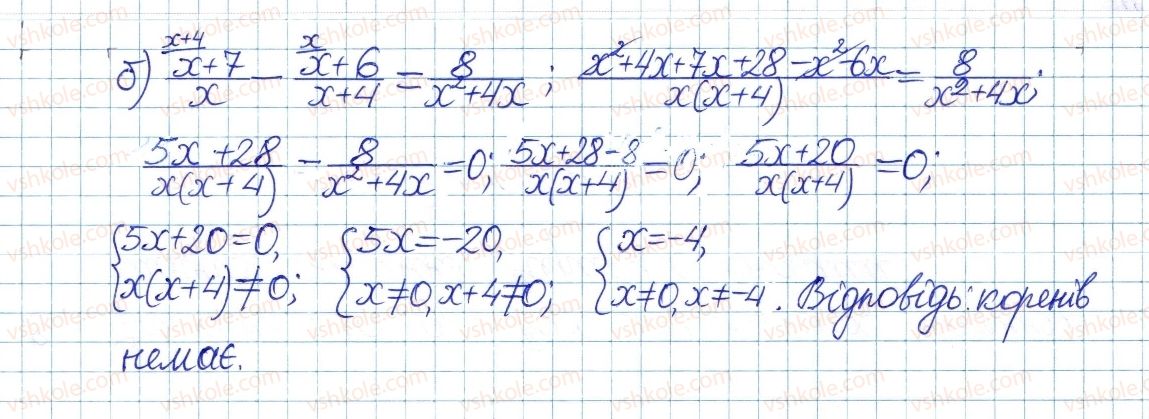 б) (x+7)/x − (x+6)/(x+4) = 8/(x²+4x); (x²+4x+7x+28−x²−6x)/(x(x+4)) = 8/(x²+4x);
x+4 x
(5x+28)/(x(x+4)) − 8/(x²+4x) = 0; (5x+28−8)/(x(x+4)) = 0; (5x+20)/(x(x+4)) = 0;
{5x+20=0, {5x=−20, {x=−4,
x(x+4)≠0; x≠0, x+4≠0; x≠0, x≠−4. Відповідь: коренів
немає.